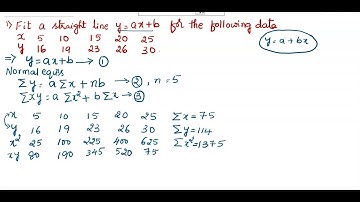 1) Fit a straight line y=ax+b for the following data
x 5 10 15 20 25
y 16 19 23 26 30
y=a+bx
⇒ y=ax+b → ①
Normal equns
Σy = aΣx + nb → ②, n=5
Σxy = aΣx² + bΣx → ③
x 5 10 15 20 25 Σx=75
y 16 19 23 26 30 Σy=114
x² 25 100 225 400 625 Σx²=1375
xy 80 190 345 520 75